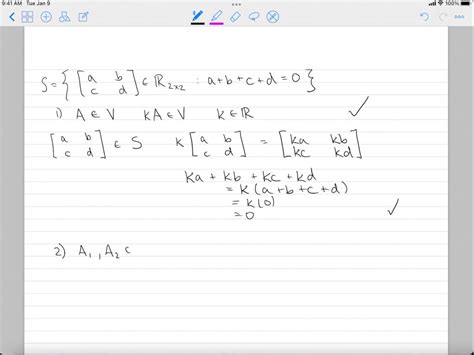 9:41 AM Tue Jan 9
100%
S = { [ a b c d ] ∈ ℝ₂ₓ₂ : a+b+c+d = 0 }
1) A ∈ V kA ∈ V k ∈ ℝ ✓
[ a b c d ] ∈ S k [ a b c d ] = [ ka kb kc kd ]
ka + kb + kc + kd
= k(a+b+c+d)
= k(0)
= 0 ✓
2) A₁, A₂